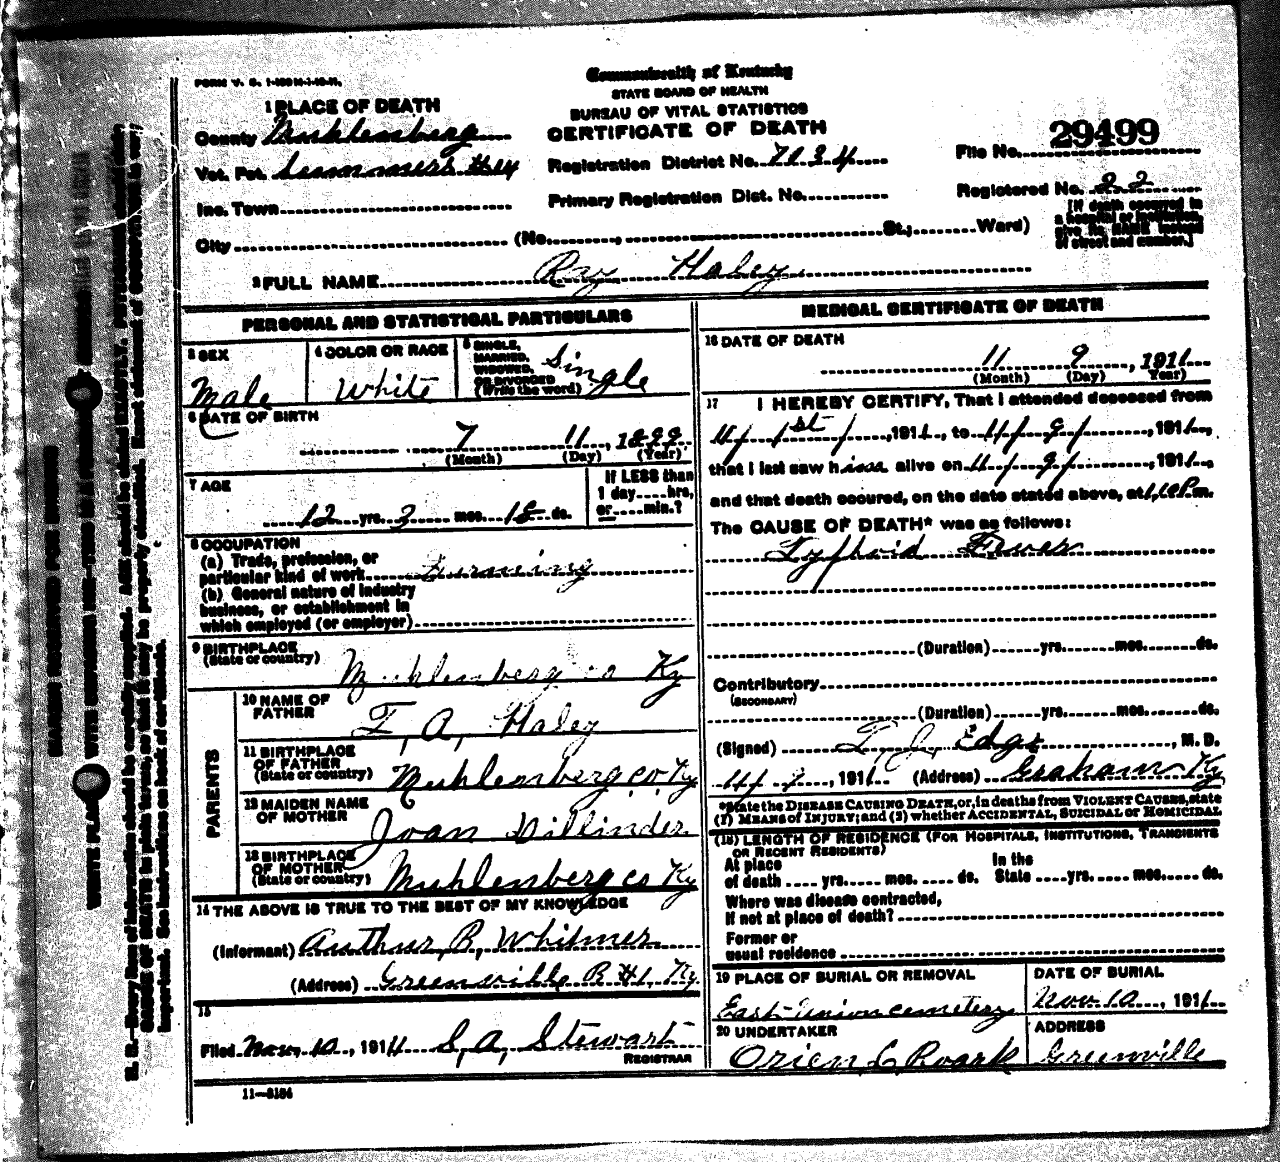 FORM V. S.
Commonwealth of Kentucky
STATE BOARD OF HEALTH
BUREAU OF VITAL STATISTICS
CERTIFICATE OF DEATH
1 PLACE OF DEATH
County Muhlenberg
Vot. Pct. #14
Inc. Town
City (No. , St.; Ward)
Registration District No. 7034
Primary Registration Dist. No.
File No. 29499
Registered No. 22
[If death occurred in
a hospital or institution,
give its NAME instead
of street and number.]
2 FULL NAME Ray Haley
PERSONAL AND STATISTICAL PARTICULARS
3 SEX
Male
4 COLOR OR RACE
White
5 SINGLE,
MARRIED,
WIDOWED,
OR DIVORCED
(Write the word)
Single
6 DATE OF BIRTH
7 11, 1899
(Month) (Day) (Year)
7 AGE
12 yrs. 3 mos. 18 ds.
If LESS than
1 day, hrs.
or min.?
8 OCCUPATION
(a) Trade, profession, or
particular kind of work
(b) General nature of industry
business, or establishment in
which employed (or employer)
9 BIRTHPLACE
(State or country)
Muhlenberg co Ky
PARENTS
10 NAME OF
FATHER
A, Haley
11 BIRTHPLACE
OF FATHER
(State or country)
Muhlenberg co Ky
12 MAIDEN NAME
OF MOTHER
Joan
13 BIRTHPLACE
OF MOTHER
(State or country)
Muhlenberg co Ky
14 THE ABOVE IS TRUE TO THE BEST OF MY KNOWLEDGE
(Informant) Authur, R, Whitmer
(Address) Greenville R #1, Ky
15
Filed Nov, 10, 1911 S, A, Stewart
REGISTRAR
11—3184
MEDICAL CERTIFICATE OF DEATH
16 DATE OF DEATH
11 9, 1911
(Month) (Day) Year)
17 I HEREBY CERTIFY, That I attended deceased from
11/ 1st /, 1911, to 11/ 9/, 1911,
that I last saw him alive on 11/ 9/, 1911,
and that death occured, on the date stated above, at P.m.
The CAUSE OF DEATH* was as follows:
Typhoid Fever
(Duration) yrs. mos. ds.
Contributory
(SECONDARY)
(Duration) yrs. mos. ds.
(Signed) J, Edge, M. D.
11/ 9, 1911 (Address) Graham Ky
*State the DISEASE CAUSING DEATH, or, in deaths from VIOLENT CAUSES, state
(1) MEANS of INJURY; and (2) whether ACCIDENTAL, SUICIDAL or HOMICIDAL
(18) LENGTH OF RESIDENCE (FOR HOSPITALS, INSTITUTIONS, TRANSIENTS
OR RECENT RESIDENTS)
At place
of death yrs. mos. ds.
In the
State yrs. mos. ds.
Where was disease contracted,
If not at place of death?
Former or
usual residence
19 PLACE OF BURIAL OR REMOVAL
East Union cemetery
DATE OF BURIAL
Nov 10, 1911
20 UNDERTAKER
Orien, C, Roark
ADDRESS
Greenville
MARGIN RESERVED FOR BINDING
WRITE PLAINLY WITH UNFADING INK—THIS IS A PERMANENT RECORD
N. B.—Every item of information should be carefully supplied. AGE should be stated EXACTLY. PHYSICIANS should state
CAUSE OF DEATH in plain terms, so that it may be properly classified. Exact statement of OCCUPATION is very
important. See instructions on back of certificate.